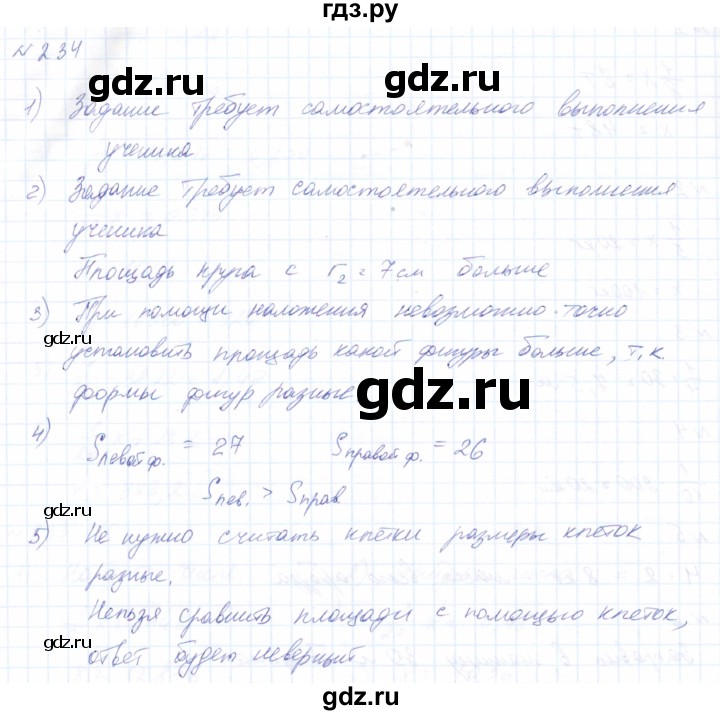 гдз.ру
№ 234
gdz.ru gdz.ru
1) Задание требует самостоятельного выполнения
ученика
2) Задание требует самостоятельного выполнения
ученика
Площадь круга с r₂ = 7 см больше
3) При помощи наложения невозможно точно
gdz.ru
установить площадь какой фигуры больше, т.к.
формы фигур разные
gdz.ru
4) Sлевой ф. = 27 Sправой ф. = 26
Sлев. > Sправ
gdz.ru gdz.ru
5) Не нужно считать клетки размеры клеток
разные.
Нельзя сравнить площади с помощью клеток,
gdz.ru
ответ будет неверный
gdz.ru